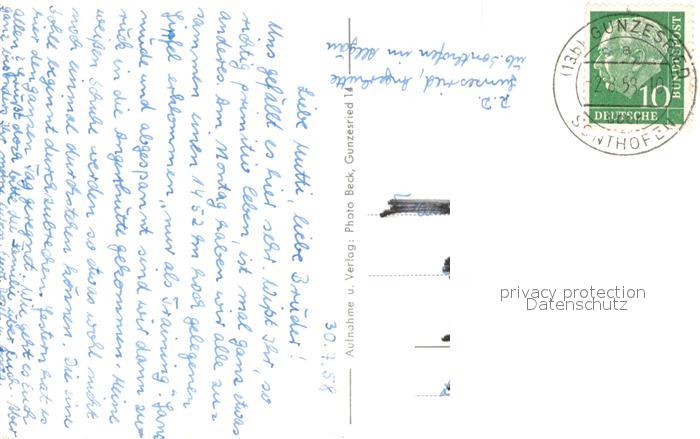 30.7.58
Liebe Mutti, liebe Brüder!
Uns gefällt es hier sehr. Wißt Ihr, so
richtig primitiv leben, ist mal ganz etwas
anderes. Am Montag haben wir alle zu-
sammen einen 1452 m hoch gelegenen
Gipfel erklommen, nur als Training. Ganz
müde und abgespannt sind wir dann zu-
rück in die Angerhütte gekommen. Meine
weißen Schuhe werden so etwas wohl nicht
noch einmal durchstehen können. Die eine
Sohle beginnt durchzubrechen. Gestern hat es
hier den ganzen Tag geregnet. Wie geht es Euch
allen?
Aufnahme u. Verlag: Photo Beck, Gunzesried 14
z.Z.
Gunzesried, Angerhütte
üb. Sonthofen im Allgäu
(13b) GUNZESRIED
SONTHOFEN
10
DEUTSCHE
BUNDESPOST
privacy protection
Datenschutz